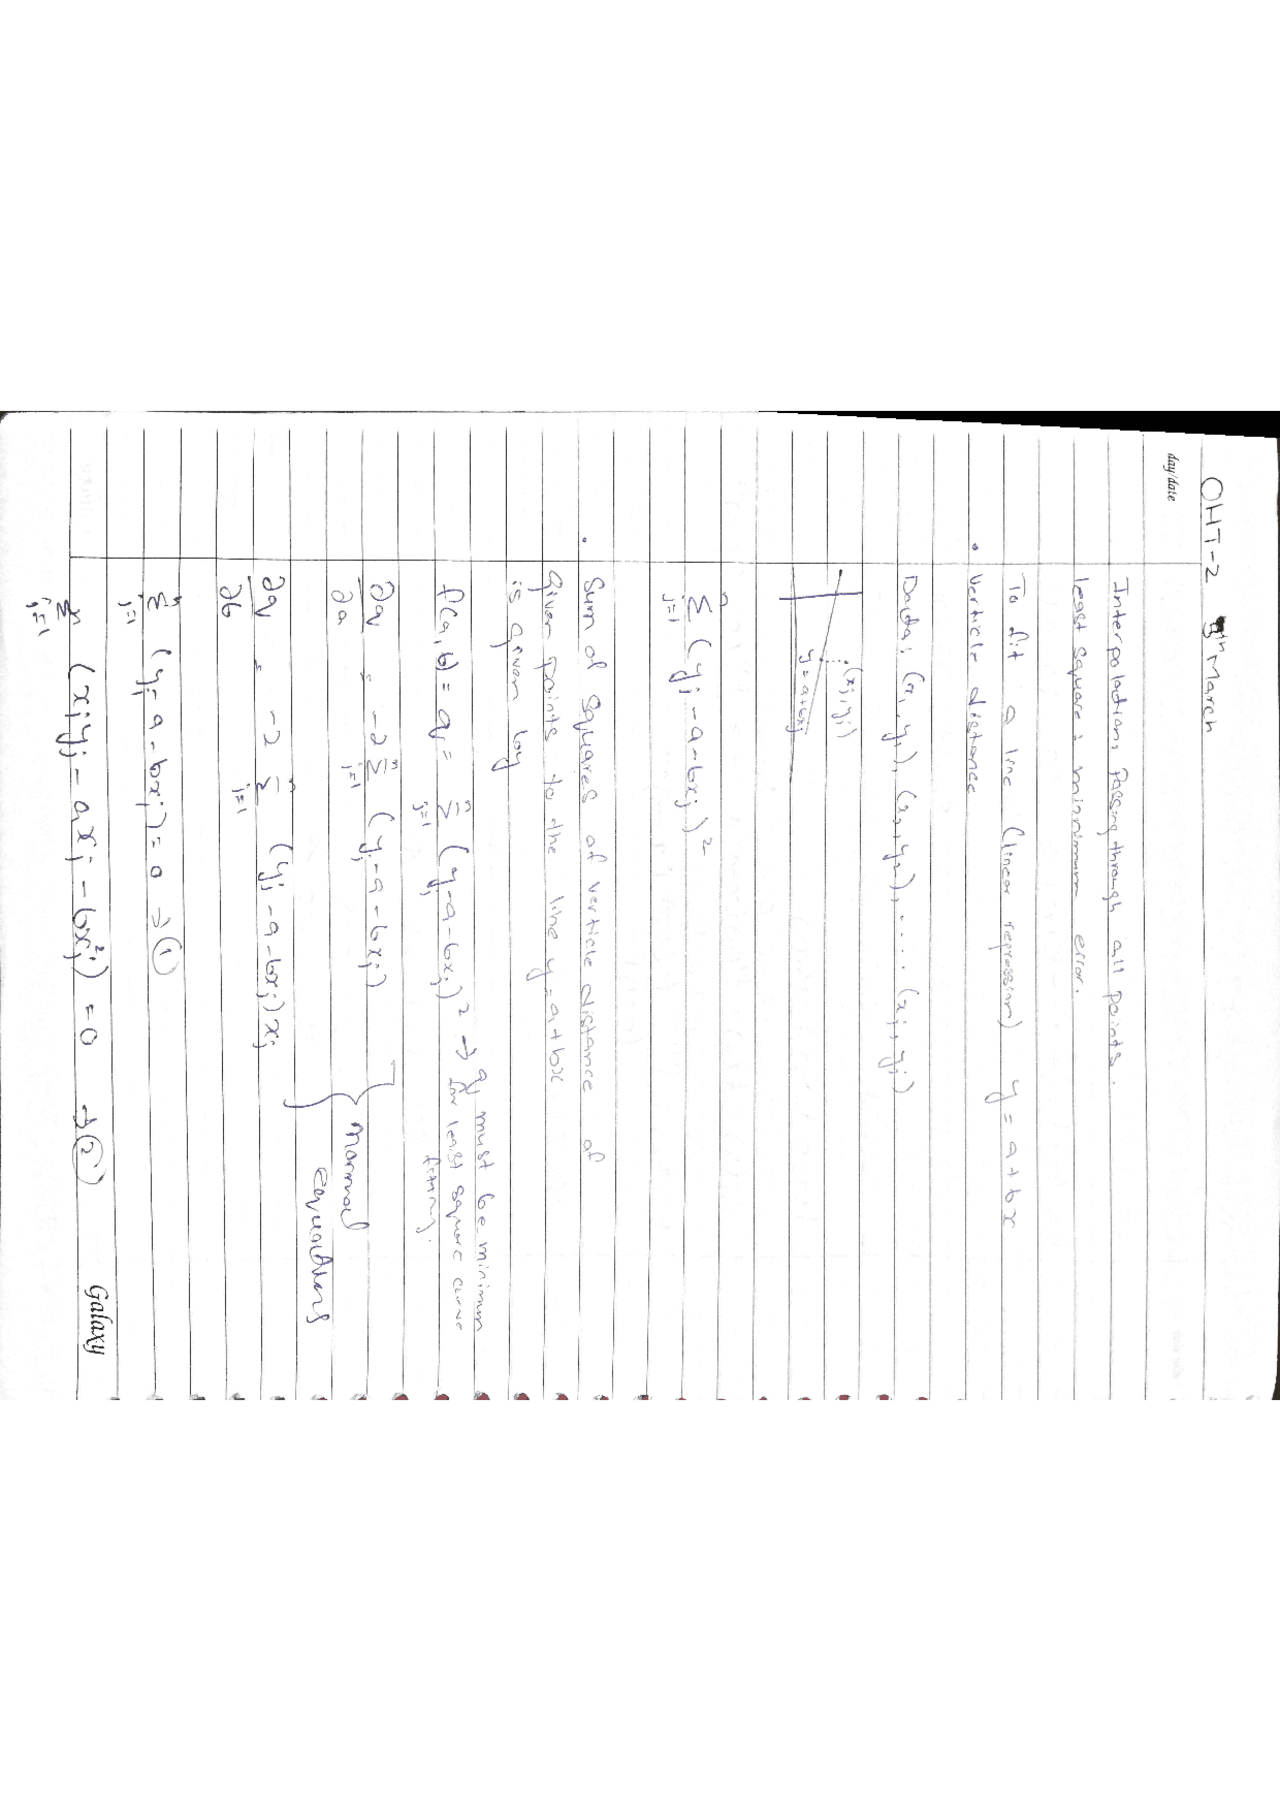 OHT-2 9th March
day/date
Interpolation, Passing through all points.
least square : minimum error.
To fit a line (linear repression) y = a + bx
• Verticle distance
Data, (x₁, y₁), (x₂, y₂), .... (xⱼ, yⱼ)
(xⱼ, yⱼ)
y = a + bxⱼ
n Σ j=1 (yⱼ - a - bxⱼ)²
• Sum of squares of verticle distance of
given points to the line y = a + bx
is given by
f(a, b) = q = n Σ j=1 (yⱼ - a - bxⱼ)² → q must be minimum
for least square curve
fitting.
∂q/∂a = -2 n Σ j=1 (yⱼ - a - bxⱼ)
∂q/∂b = -2 n Σ j=1 (yⱼ - a - bxⱼ) xⱼ
Normal
equations
n Σ j=1 (yⱼ - a - bxⱼ) = 0 → ①
n Σ j=1 (xⱼyⱼ - axⱼ - bx²ⱼ) = 0 → ②
Galaxy